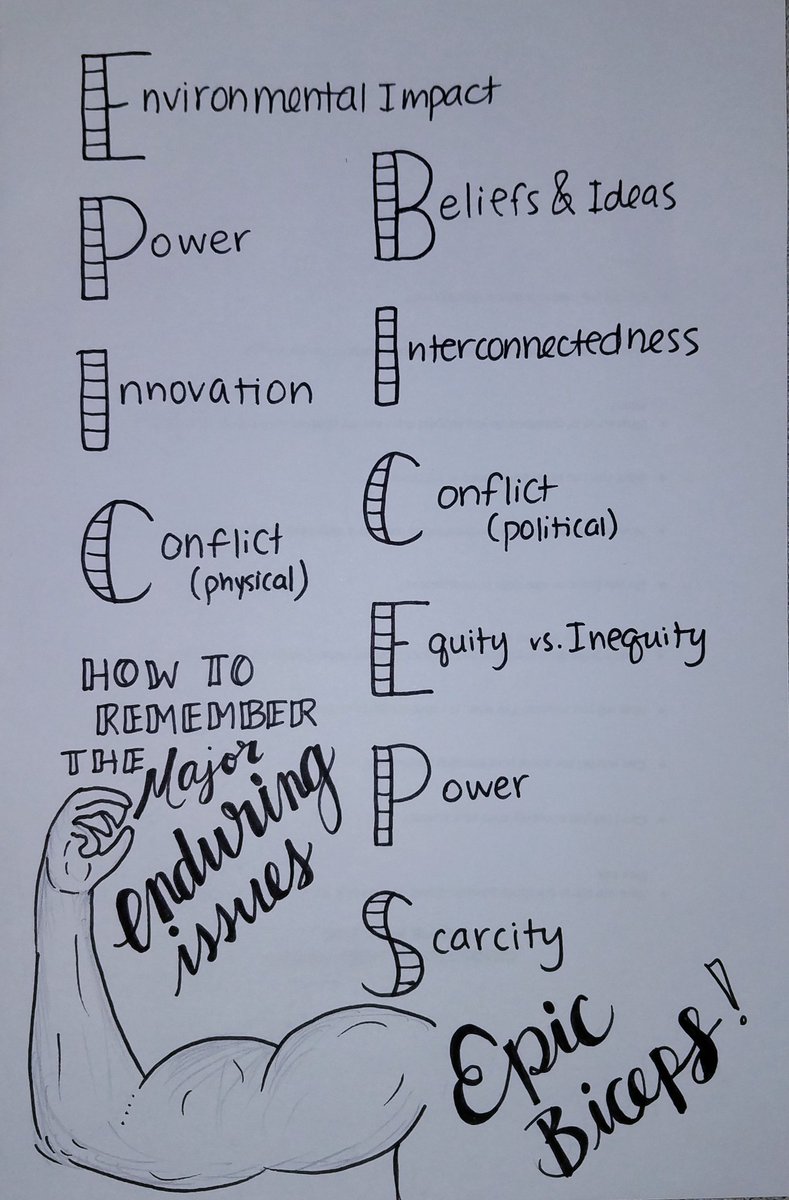 Environmental Impact
Power
Innovation
Conflict
(physical)
Beliefs & Ideas
Interconnectedness
Conflict
(political)
Equity vs. Inequity
Power
Scarcity
HOW TO
REMEMBER
THE Major
enduring
issues
Epic
Biceps!